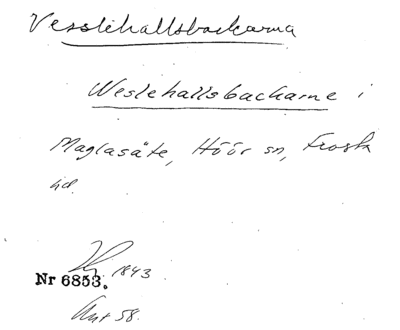 Vesslehallsbackarna
Weslehallsbackarne i
Maglasäte, Höör sn, Frosta
hd.
1843
Nr 6853.
Ant 58.